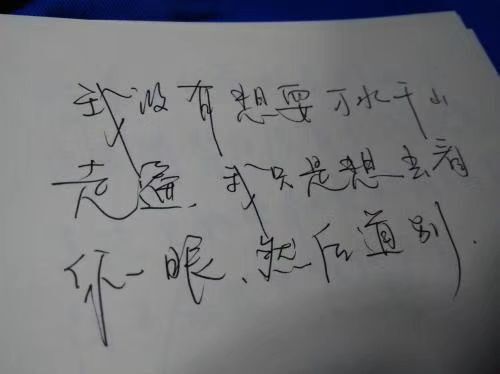 我没有想要万水千山
走遍，我只是想去看
你一眼，然后道别.